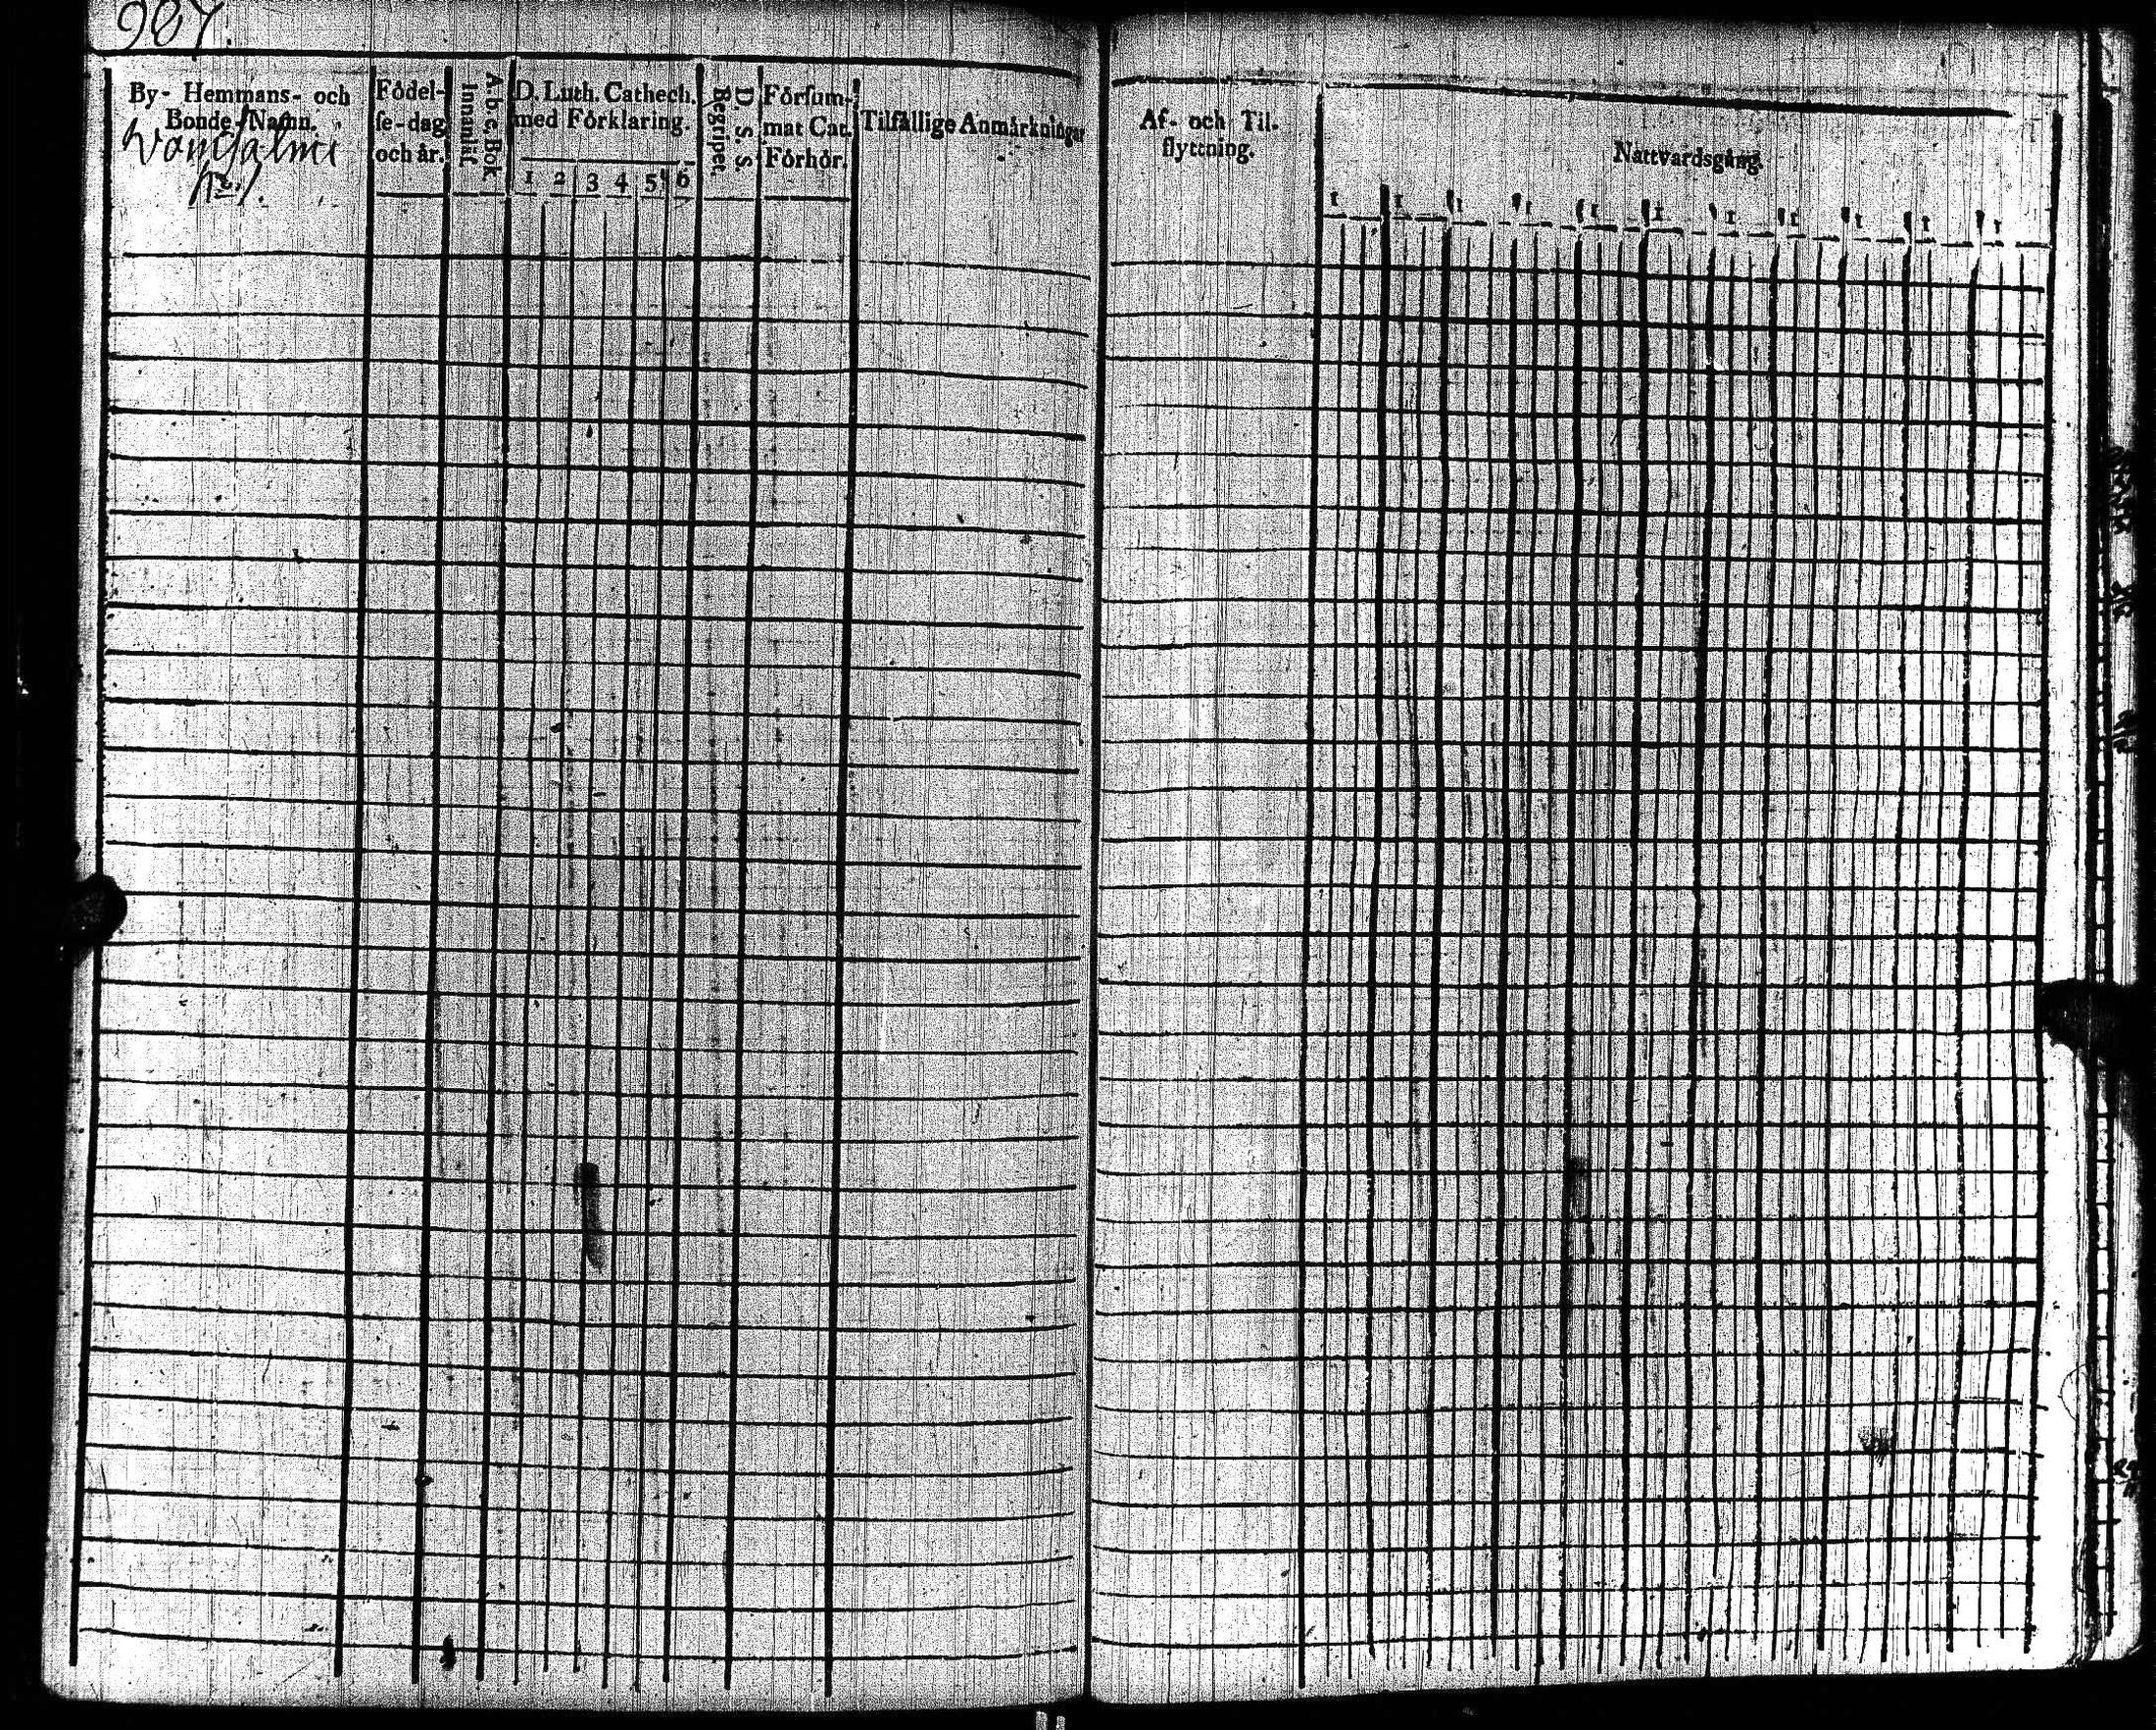 987.
By- Hemmans- och
Bonde-Namn.
No 1.
Födel-
se-dag
och år.
A. b. c, Bok
Innanläs.
D. Luth. Cathech.
med Förklaring.
1 2 3 4 5 6
D. S. S.
Begripet.
Försum-
mat Cat.
Förhör.
Tilfällige Anmärkningar
Af- och Til-
flyttning.
Nattvardsgång.
1 1 1 1 1 1 1 1 1 1 1